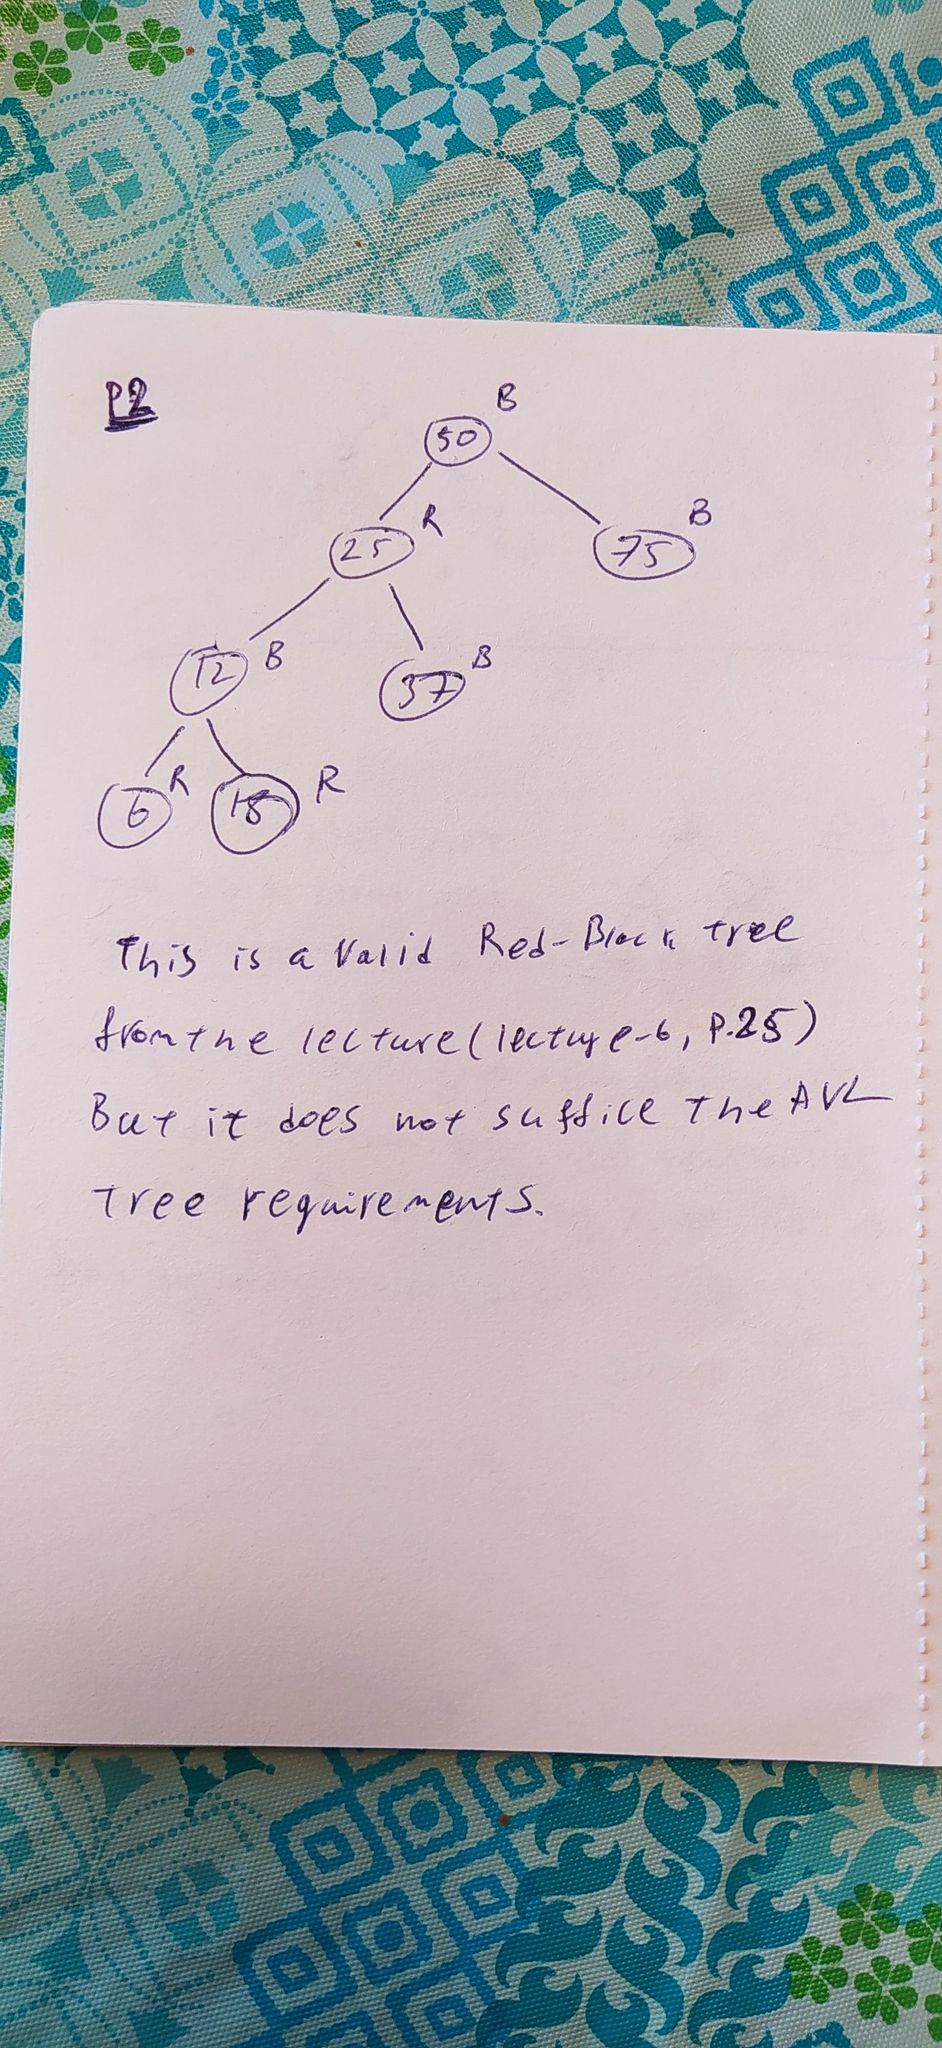 P2
B
50
R
B
25
75
B
B
12
37
R
R
6
18
This is a valid Red-Black tree
from the lecture (lecture-6, P.25)
But it does not suffice the AVL
Tree requirements.